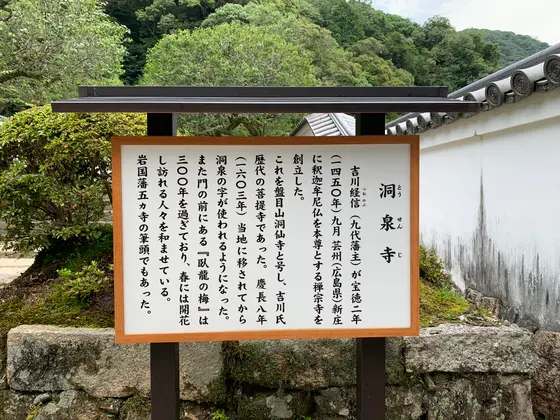 洞泉寺
とうせんじ
吉川経信（九代藩主）が宝徳二年
（一四五〇年）九月 芸州（広島県）新庄
に釈迦牟尼仏を本尊とする禅宗寺を
創立した。
これを盤目山洞仙寺と号し、吉川氏
歴代の菩提寺であった。慶長八年
（一六〇三年）当地に移されてから
洞泉の字が使われるようになった。
また門の前にある『臥龍の梅』は
三〇〇年を過ぎており、春には開花
し訪れる人々を和ませている。
岩国藩五ヵ寺の筆頭でもあった。